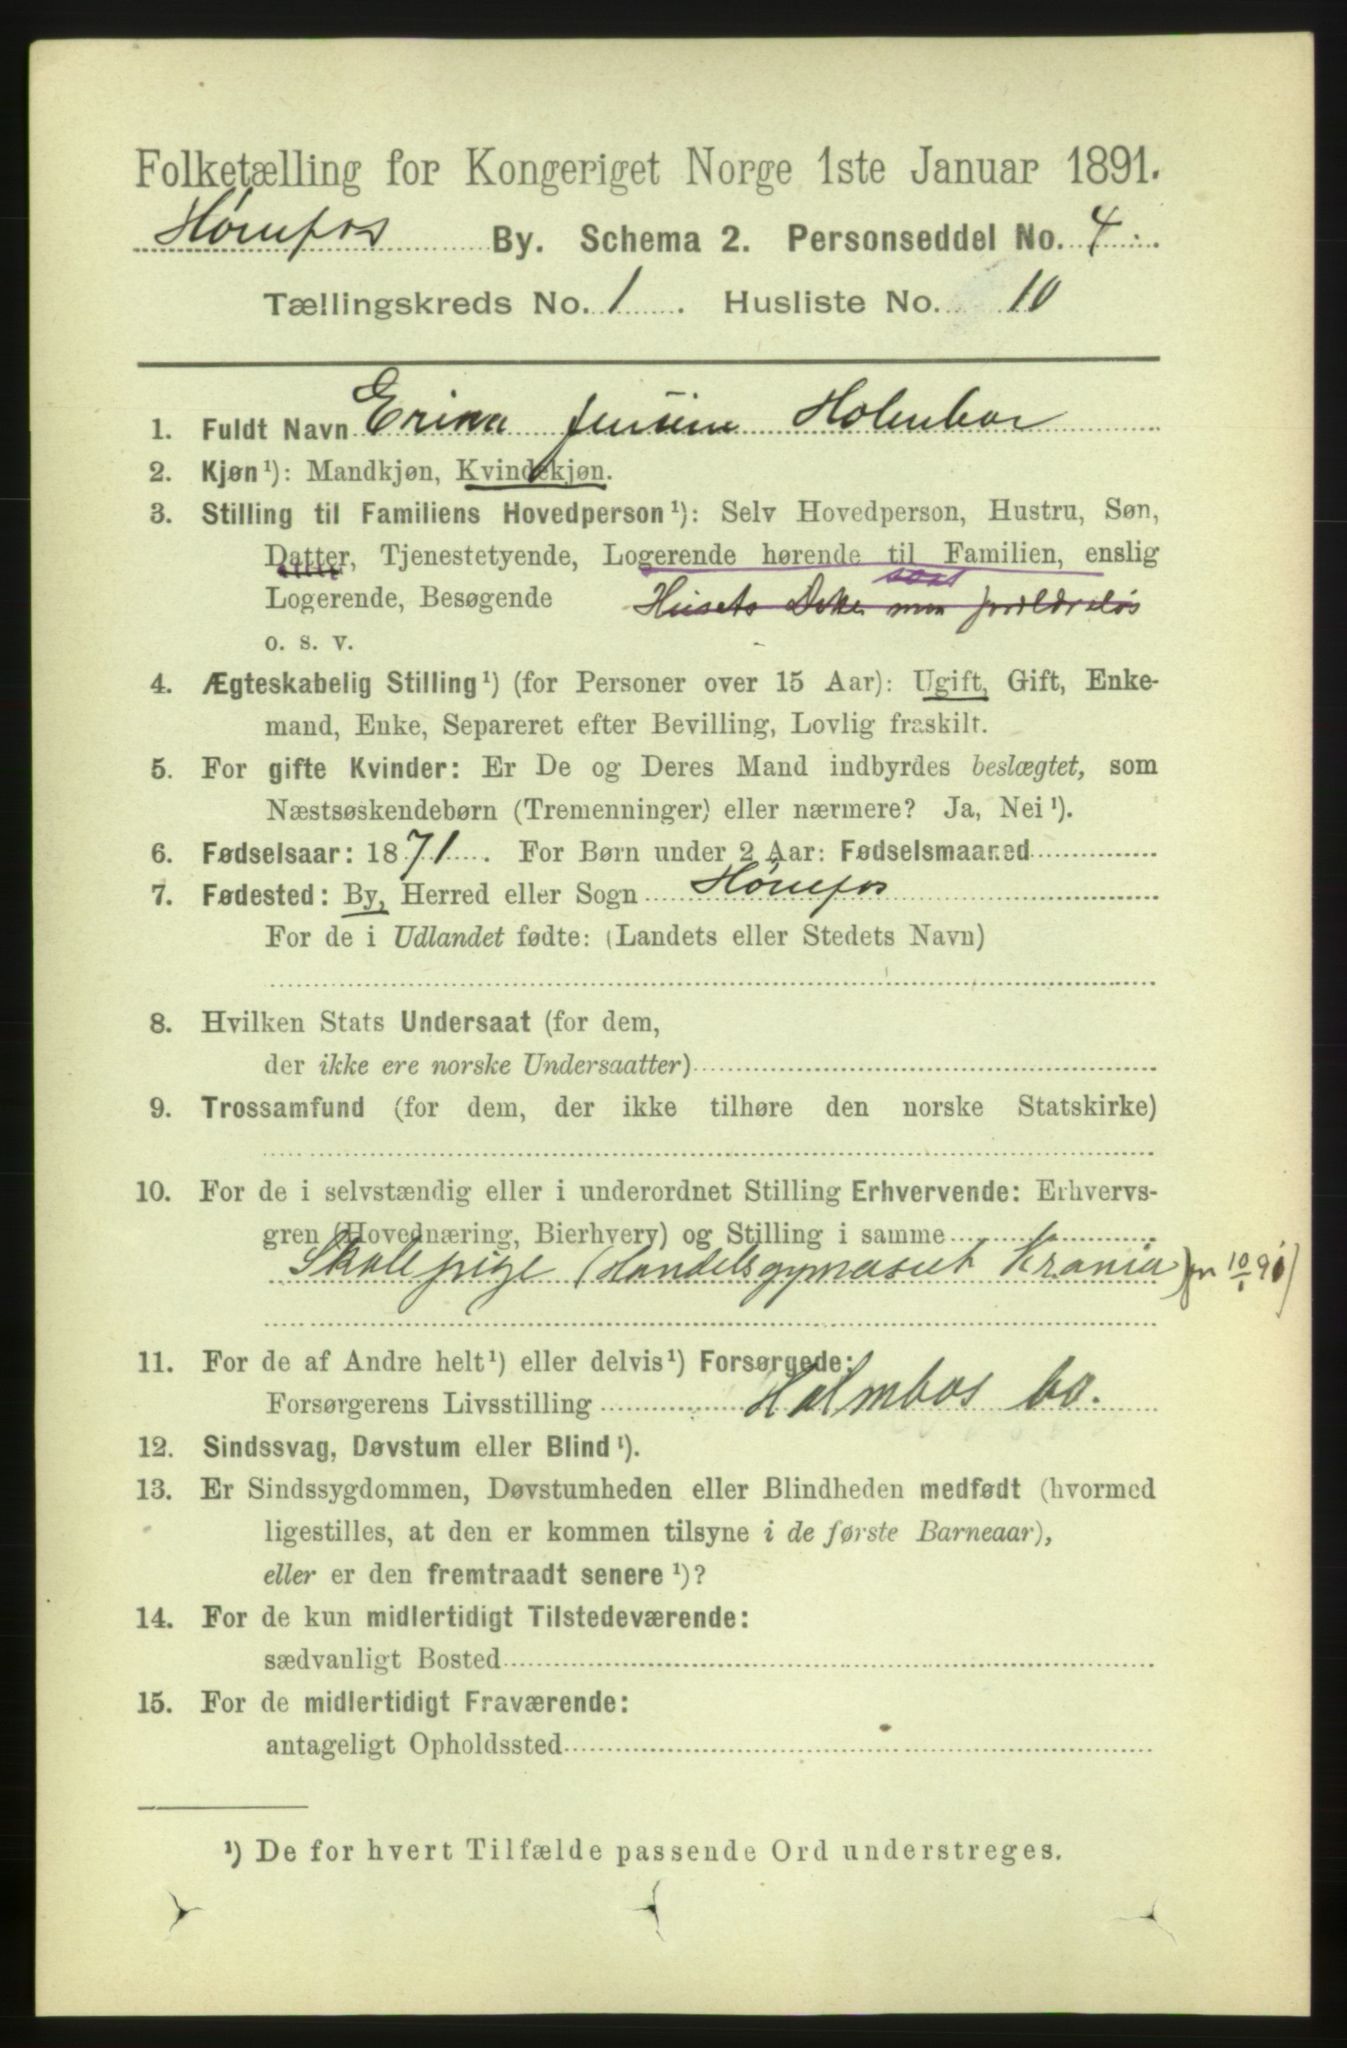 Folketælling for Kongeriget Norge 1ste Januar 1891.
Hønefos By. Schema 2. Personseddel No. 4.
Tællingskreds No. 1. Husliste No. 10
1. Fuldt Navn Erika Jensine Holmboe
2. Kjøn¹): Mandkjøn, Kvindekjøn.
3. Stilling til Familiens Hovedperson¹): Selv Hovedperson, Hustru, Søn,
Datter, Tjenestetyende, Logerende hørende til Familien, enslig
Logerende, Besøgende Husets forældreløs
o. s. v.
4. Ægteskabelig Stilling¹) (for Personer over 15 Aar): Ugift, Gift, Enke-
mand, Enke, Separeret efter Bevilling, Lovlig fraskilt.
5. For gifte Kvinder: Er De og Deres Mand indbyrdes beslægtet, som
Næstsøskendebørn (Tremenninger) eller nærmere? Ja, Nei¹).
6. Fødselsaar: 1871. For Børn under 2 Aar: Fødselsmaaned
7. Fødested: By, Herred eller Sogn Hønefos
For de i Udlandet fødte: (Landets eller Stedets Navn)
8. Hvilken Stats Undersaat (for dem,
der ikke ere norske Undersaatter)
9. Trossamfund (for dem, der ikke tilhøre den norske Statskirke)
10. For de i selvstændig eller i underordnet Stilling Erhvervende: Erhvervs-
gren (Hovednæring, Bierhverv) og Stilling i samme
Skolepige (Handelsgymnasiet Krania) fr 10/1 91)
11. For de af Andre helt¹) eller delvis¹) Forsørgede:
Forsørgerens Livsstilling Holmboes bo.
12. Sindssvag, Døvstum eller Blind¹).
13. Er Sindssygdommen, Døvstumheden eller Blindheden medfødt (hvormed
ligestilles, at den er kommen tilsyne i de første Barneaar),
eller er den fremtraadt senere¹)?
14. For de kun midlertidigt Tilstedeværende:
sædvanligt Bosted
15. For de midlertidigt Fraværende:
antageligt Opholdssted
¹) De for hvert Tilfælde passende Ord understreges.